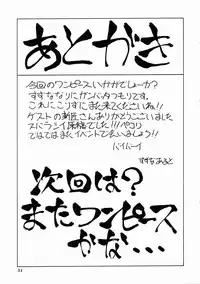 あとがき
今回のワンピースいかがでしょーか？
すずなりにガンバッタつもりです。
これにこりずにまた来てくださいね!!
ゲストの新匠さんありがとうございました
スバラシイ原稿でした!!! ペコリ
ではではまたイベントで会いましょう!!
バイバーイ
すずなあると
次回は？
またワンピース
かな・・・
31